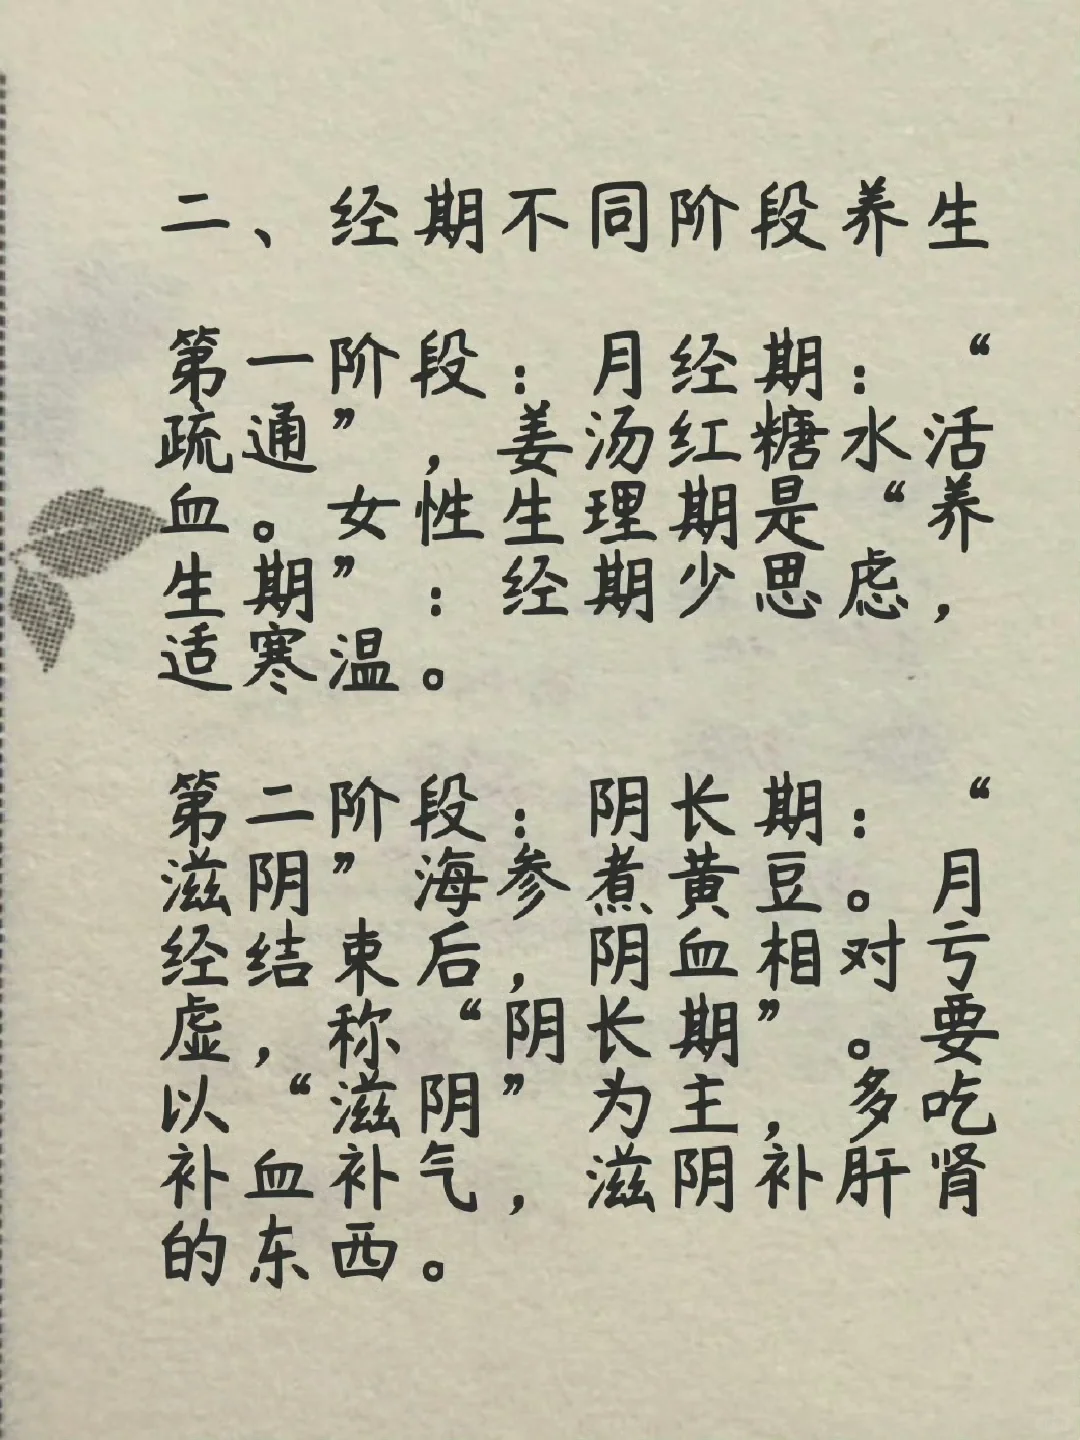 二、经期不同阶段养生
第一阶段：月经期：“
疏通”，姜汤红糖水活
血。女性生理期是“养
生期”：经期少思虑，
适寒温。
第二阶段：阴长期：“
滋阴”海参煮黄豆。月
经结束后，阴血相对亏
虚，称“阴长期”。要
以“滋阴”为主，多吃
补血补气，滋阴补肝肾
的东西。